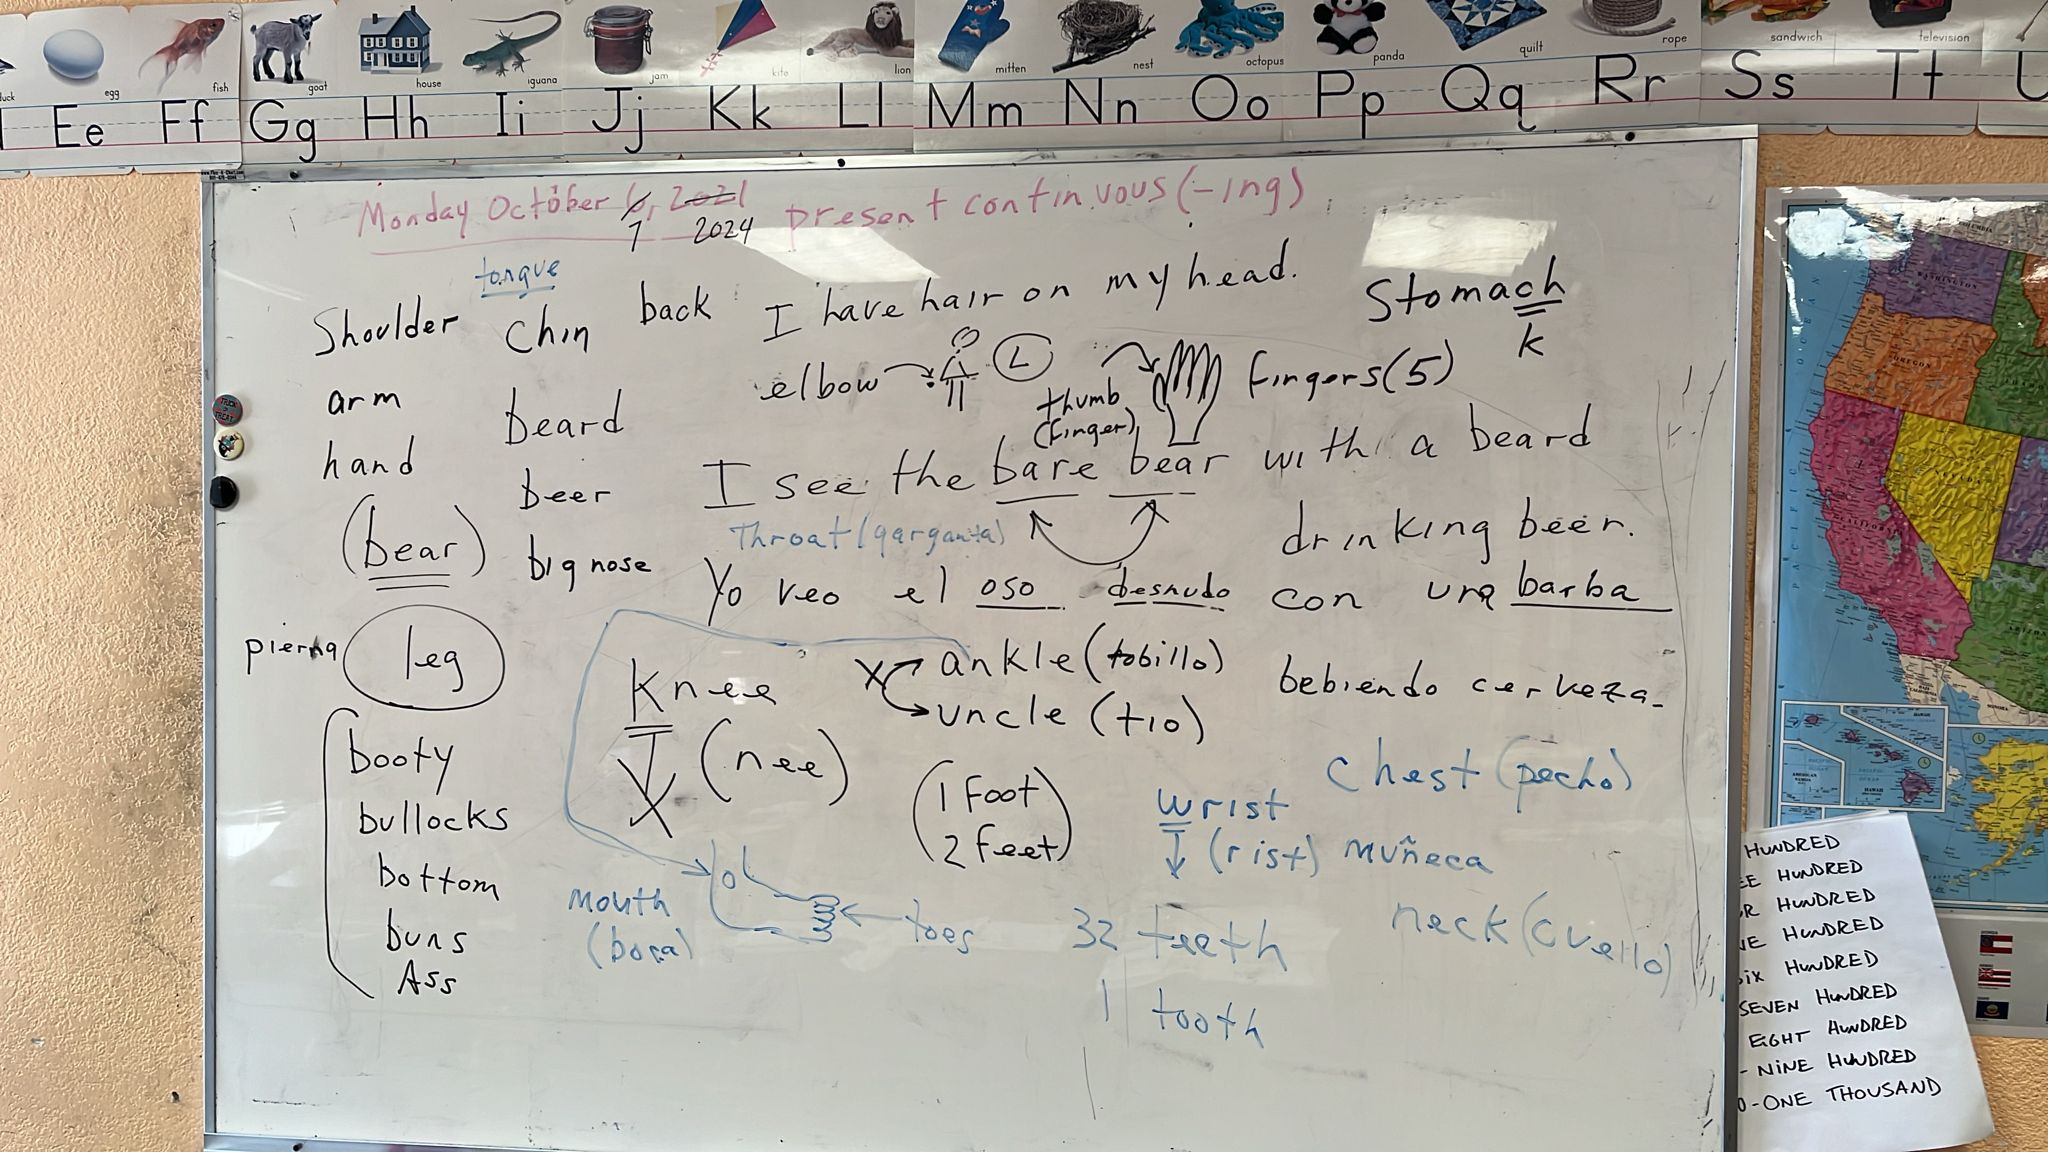 duck egg fish goat house iguana jam kite lion mitten nest octopus panda quilt rope sandwich television
Ee Ff Gg Hh Ii Jj Kk Ll Mm Nn Oo Pp Qq Rr Ss Tt U
Monday October 6, 2021 present continuous (-ing)
7 2024
tongue
Shoulder chin back I have hair on my head. Stomach
k
arm beard elbow L thumb (finger) fingers (5)
hand beer I see the bare bear with a beard
drinking beer.
(bear) big nose Throat (garganta)
Yo veo el oso desnudo con una barba
bebiendo cerveza.
pierna leg
Knee X ankle (tobillo)
uncle (tio)
X (nee)
booty
bullocks
bottom
buns
Ass
(1 foot
2 feet)
wrist
(rist) muñeca
chest (pecho)
mouth
(boca)
toes
32 teeth
1 tooth
neck (cuello)
WASHINGTON
OREGON
CALIFORNIA
NEVADA
PACIFIC
HAWAII
HUNDRED
EE HUNDRED
R HUNDRED
VE HUNDRED
SIX HUNDRED
SEVEN HUNDRED
EIGHT HUNDRED
- NINE HUNDRED
0-ONE THOUSAND